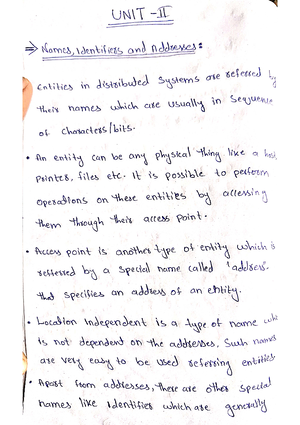 UNIT - II
⇒ Names, Identifiers and Addresses:
Entities in distributed Systems are referred by
their names which are usually in Sequence
of characters/bits.
• An entity can be any physical thing like a host,
printer, files etc. It is possible to perform
operations on these entities by accessing
them through their access point.
• Access point is another type of entity which is
reffered by a special name called 'address'.
that specifies an address of an entity.
• Location Independent is a type of name
is not dependent on the addresses. Such names
are very easy to be used referring entities
• Apart from addresses, there are other special
names like identifiers which are generally